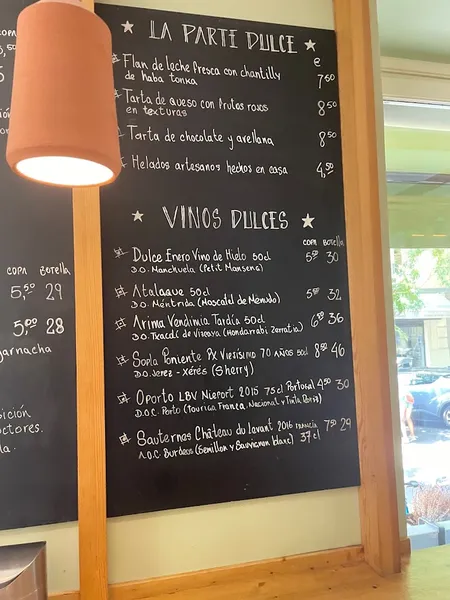 COPA
LA PARTE DULCE
€
Flan de leche fresca con chantilly
de haba tonka 7,50
Tarta de queso con frutos rojos
en texturas 8,50
Tarta de chocolate y avellana 8,50
Helados artesanos hechos en casa 4,50
VINOS DULCES
COPA Botella
Dulce Enero Vino de Hielo 50cl 30
D.O. Manchuela (Petit Manseng)
Atalaque 50cl 32
D.O. Méntrida (Moscatel de Menudo)
Arima Vendimia Tardía 50cl 6,50 36
D.O. Txacolí de Vizcaya (Hondarrabi Zerratia)
Sopla Poniente PX Viejísimo 70 años 50cl 8,50 46
D.O. Jerez - Xérès (Sherry)
Oporto LBV Nieport 2015 75cl Portugal 4,50 30
D.O.C. Porto (Touriga Franca, Nacional y Tinta Roriz)
Sauternes Château du Levant 2016 Francia 7,50 29
A.O.C. Burdeos (Semillon y Sauvignon blanc) 37cl
COPA Botella
5,50 29
28
garnacha